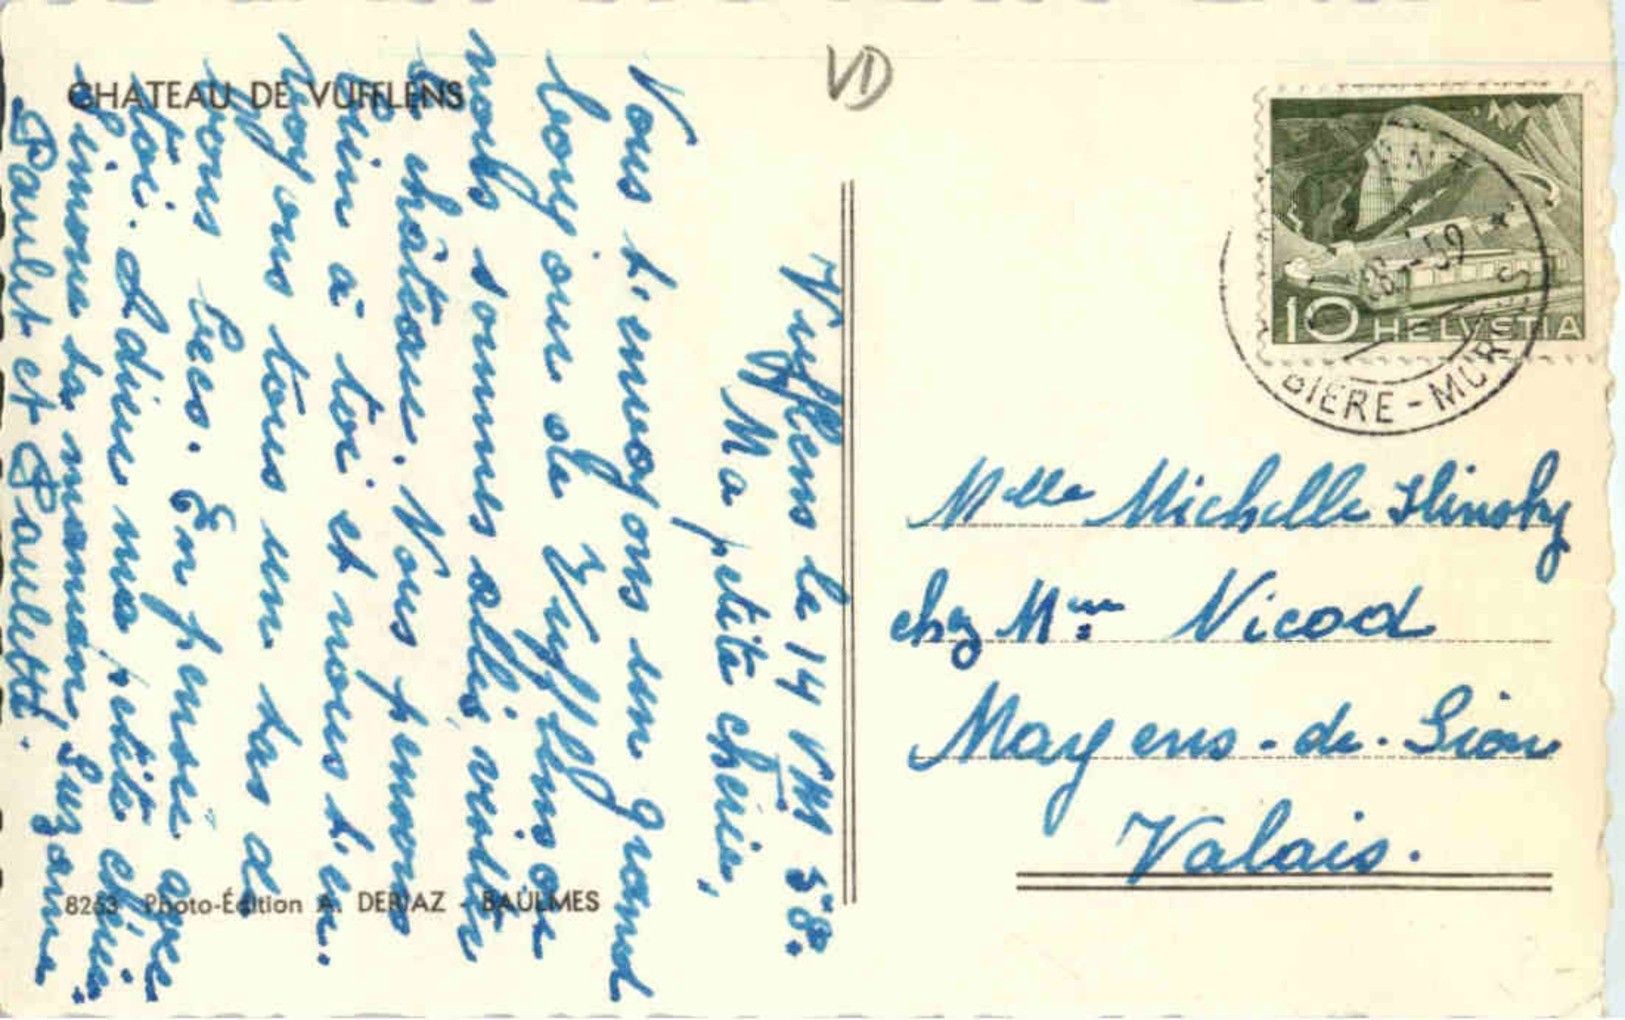 CHATEAU DE VUFFLENS
VD
Vufflens le 14 VIII 58.
Ma petite chérie,
Vous t'envoyons un grand
bonjour de Vufflens où
nous sommes allés visiter
le château. Nous pensons
bien à toi et nous t'en
voyons tous un tas de
bons becs. En pensée avec
toi. Adieu ma petite chérie
Simone ta maman, Suzanne
Paulet et Paulette.
8263 Photo-Édition A. DERIAZ - BAULMES
10 HELVETIA
59
BIÈRE - MORGES
Melle Michelle
chez Mme Nicod
Mayens-de-Sion
Valais.